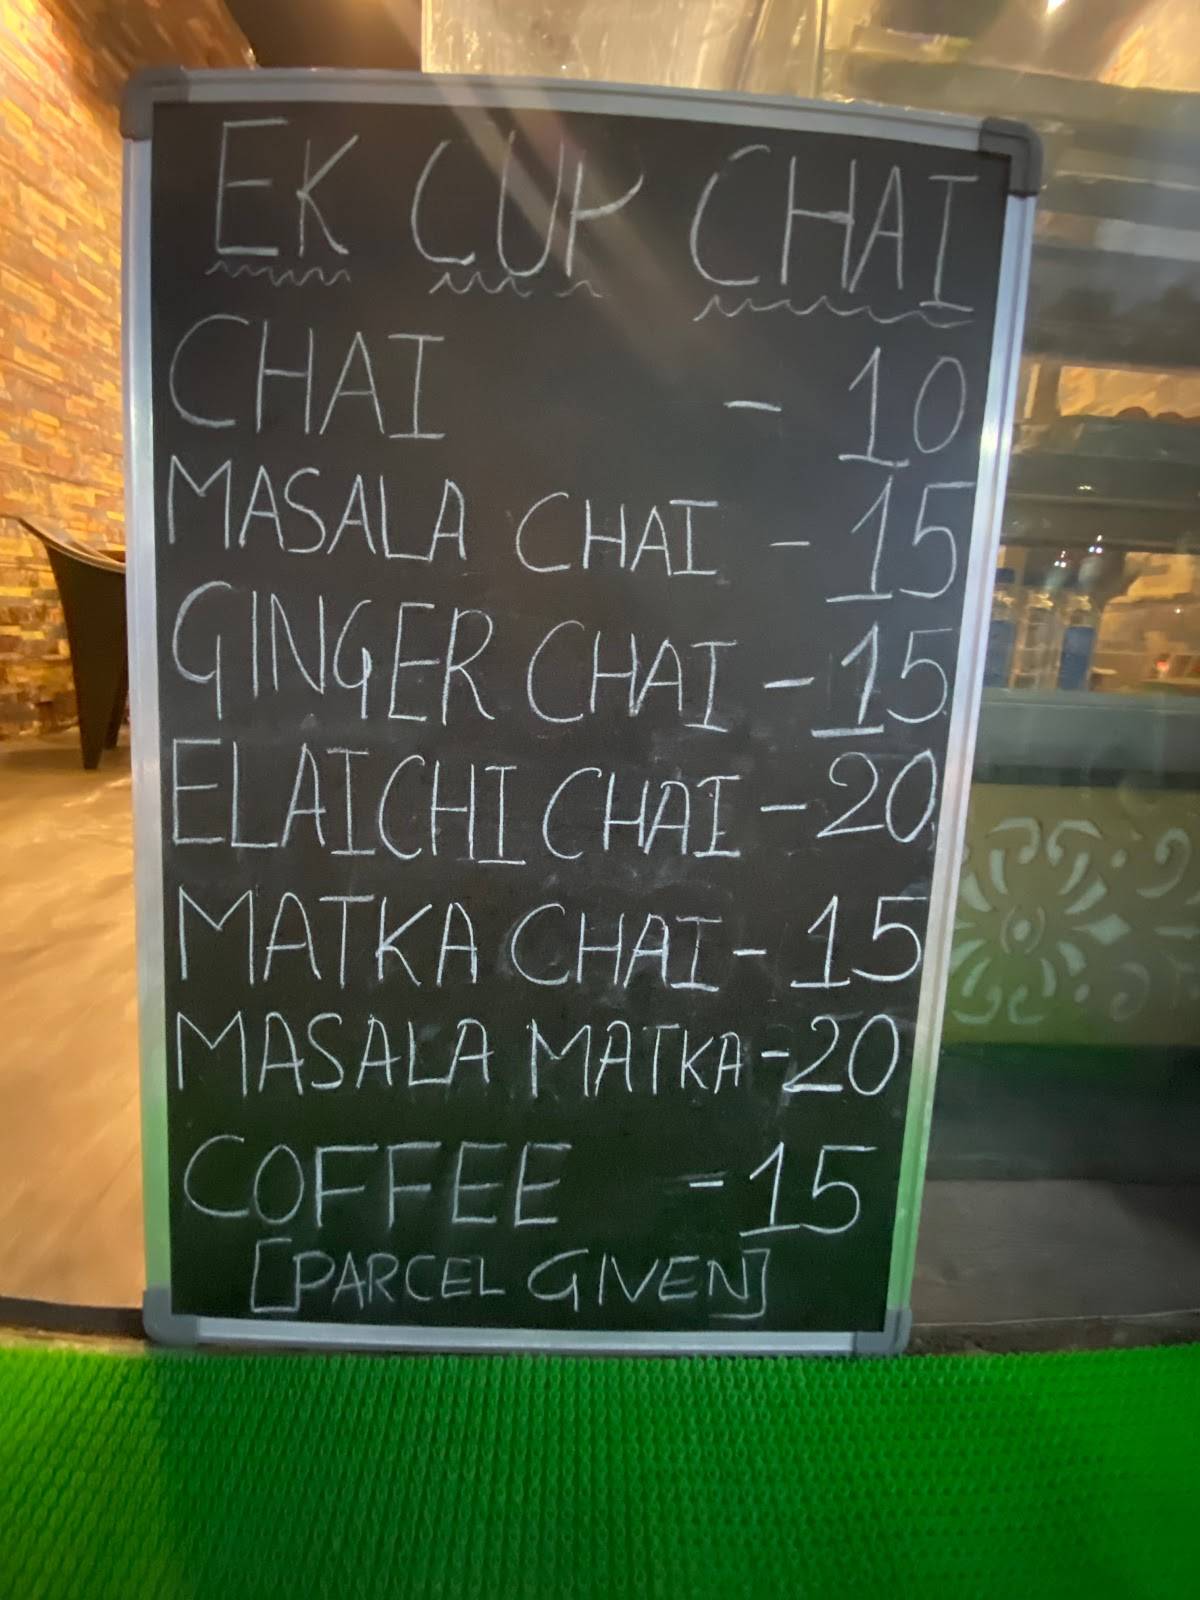 EK CUP CHAI
CHAI - 10
MASALA CHAI - 15
GINGER CHAI - 15
ELAICHI CHAI - 20
MATKA CHAI - 15
MASALA MATKA - 20
COFFEE - 15
[PARCEL GIVEN]